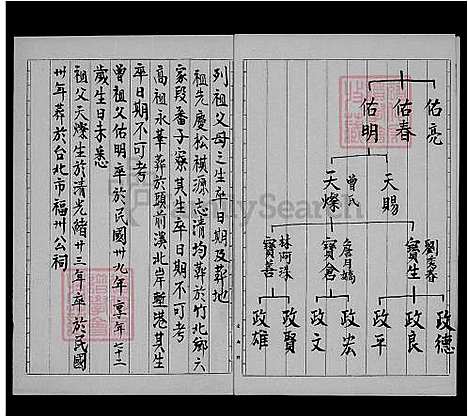 佑亮
佑春
佑明
天賜
曾氏
天燦
寶生
詹月嬌
寶倉
林阿珠
寶善
政德
政良
政平
政宏
政文
政賢
政雄
列祖父母之生卒日期及葬地
祖先慶松祺源志清均葬於竹北鄉六
家段番子寮其生卒日期不可考
高祖永華葬於頭前溪北岸塹港其生
卒日期不可考
曾祖父佑明卒於民國卅九年享年七十二
歲生日未悉
祖父天燦生於清光緒廿三年卒於民國
卅年葬於台北市福州公祠
MySearch